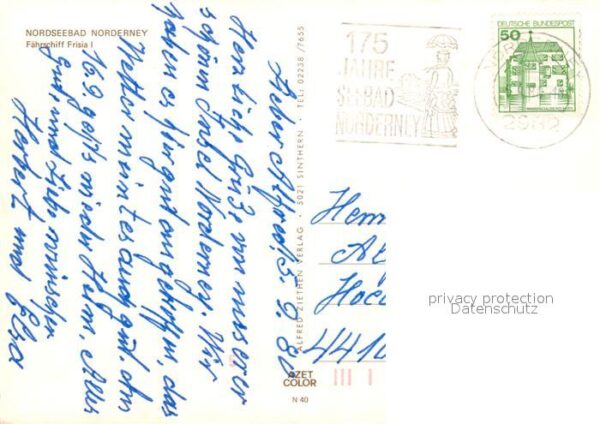 NORDSEEBAD NORDERNEY
Fährschiff Frisia I
175
JAHRE
SEEBAD
NORDERNEY
DEUTSCHE BUNDESPOST
50
2982
ALFRED ZIETHEN VERLAG · 5021 SINTHERN · TEL: 02238 /7655
Lieber Alfred! 5.9.80
Herzliche Grüße von unserer
schönen Insel Norderney. Wir
haben es hier gut angetroffen, das
Wetter meint es auch gut. Am
16.9. geht's wieder heim. Alles
Gute und Liebe wünschen
Herbert und Elsa
Herrn
Al
441
privacy protection
Datenschutz
AZET
COLOR
N 40